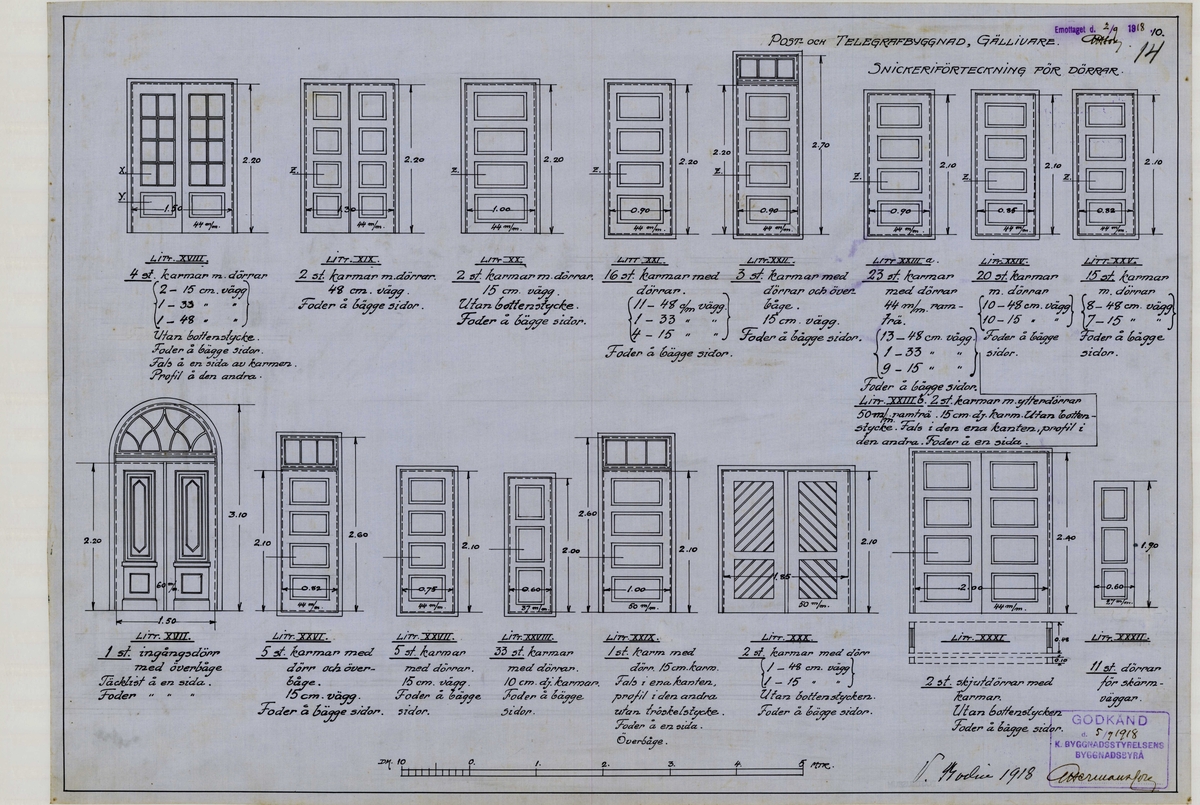 Emottaget d. 2/9 1918
POST- OCH TELEGRAFBYGGNAD, GÄLLIVARE.
10.
14
SNICKERIFÖRTECKNING FÖR DÖRRAR.
X.
Y.
1.50
44 m/m.
2.20
Z.
1.30
44 m/m.
2.20
Z.
1.00
44 m/m.
2.20
Z.
0.90
44 m/m.
2.20
2.20
Z.
0.90
44 m/m.
2.70
Z.
0.90
44 m/m.
2.10
Z.
0.85
44 m/m.
2.10
Z.
0.82
44 m/m.
2.10
Litt. XVIII.
4 st. karmar m. dörrar
2 – 15 cm. vägg
1 – 33 " "
1 – 48 " "
Utan bottenstycke.
Foder å bägge sidor.
Fals å en sida av karmen.
Profil å den andra.
Litt. XIX.
2 st. karmar m. dörrar.
48 cm. vägg.
Foder å bägge sidor.
Litt. XX.
2 st. karmar m. dörrar.
15 cm. vägg.
Utan bottenstycke.
Foder å bägge sidor.
Litt. XXI.
16 st. karmar med
dörrar.
11 – 48 c/m vägg
1 – 33 " "
4 – 15 " "
Foder å bägge sidor.
Litt. XXII.
3 st. karmar med
dörrar och över
båge.
15 cm. vägg.
Foder å bägge sidor.
Litt. XXIII a.
23 st. karmar
med dörrar
44 m/m. ram-
trä.
13 – 48 cm. vägg.
1 – 33 " "
9 – 15 " "
Foder å bägge sidor.
Litt. XXIII b. 2 st. karmar m. ytterdörrar
50 m/m. ramträ. 15 cm. dj. karm. Utan botten-
stycke. Fals i den ena kanten, profil i
den andra. Foder å en sida.
Litt. XXIV.
20 st. karmar
m. dörrar
10 – 48 cm. vägg
10 – 15 " "
Foder å bägge
sidor.
Litt. XXV.
15 st. karmar
m. dörrar
8 – 48 cm. vägg
7 – 15 " "
Foder å bägge
sidor.
2.20
60 m/m
1.50
3.10
2.10
0.82
44 m/m.
2.60
0.75
44 m/m.
2.10
0.60
37 m/m.
2.00
2.60
1.00
50 m/m.
2.10
1.85
50 m/m.
2.10
2.00
44 m/m.
2.40
0.10
0.60
27 m/m.
1.90
Litt. XVII.
1 st. ingångsdörr
med överbåge
Täcklist å en sida.
Foder " " "
Litt. XXVI.
5 st. karmar med
dörr och över-
båge.
15 cm. vägg.
Foder å bägge sidor.
Litt. XXVII.
5 st. karmar
med dörrar.
15 cm. vägg.
Foder å bägge
sidor.
Litt. XXVIII.
33 st. karmar
med dörrar.
10 cm. dj. karmar.
Foder å bägge
sidor.
Litt. XXIX.
1 st. karm med
dörr. 15 cm. karm.
Fals i ena kanten,
profil i den andra
utan tröskelstycke.
Foder å en sida.
Överbåge.
Litt. XXX.
2 st. karmar med dörr
1 – 48 cm. vägg
1 – 15 " "
Utan bottenstycken.
Foder å bägge sidor.
Litt. XXXI.
2 st. skjutdörrar med
karmar.
Utan bottenstycken
Foder å bägge sidor.
Litt. XXXII.
11 st. dörrar
för skärm-
väggar.
DM. 10 0 1. 2. 3. 4. 5 MTR.
GODKÄND
d. 5/9 1918
K. BYGGNADSSTYRELSENS
BYGGNADSBYRÅ
1918